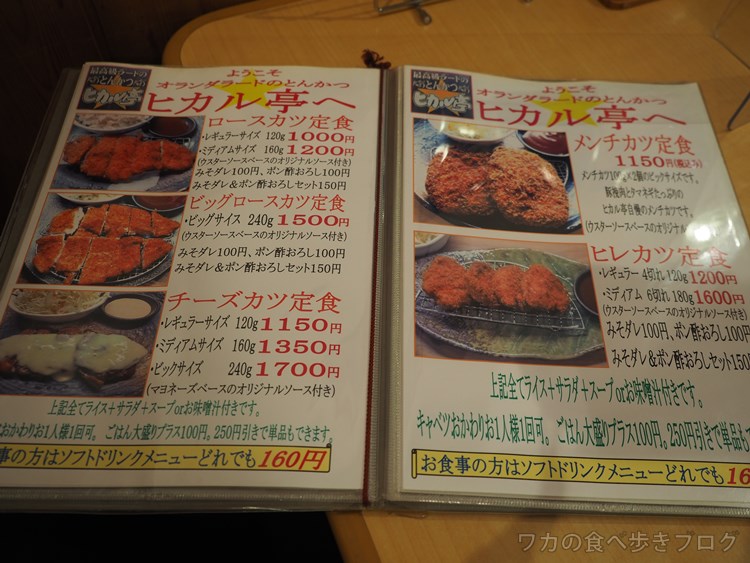 最高級ラードの
とんかつ
ヒカル亭
ようこそ
オランダラードのとんかつ
ヒカル亭へ
ロースカツ定食
・レギュラーサイズ 120g 1000円
・ミディアムサイズ 160g 1200円
(ウスターソースベースのオリジナルソース付き)
みそダレ100円、ポン酢おろし100円
みそダレ&ポン酢おろしセット150円
ビッグロースカツ定食
・ビッグサイズ 240g 1500円
(ウスターソースベースのオリジナルソース付き)
みそダレ100円、ポン酢おろし100円
みそダレ&ポン酢おろしセット150円
チーズカツ定食
・レギュラーサイズ 120g 1150円
・ミディアムサイズ 160g 1350円
・ビックサイズ 240g 1700円
(マヨネーズベースのオリジナルソース付き)
上記全てライス+サラダ+スープorお味噌汁付きです。
おかわりお1人様1回可。ごはん大盛りプラス100円。250円引きで単品もできます。
事の方はソフトドリンクメニューどれでも160円
最高級ラードの
とんかつ
ヒカル亭
ようこそ
オランダラードのとんかつ
ヒカル亭へ
メンチカツ定食
1150円(税込み)
メンチカツ100g×2個のビックサイズです。
豚挽肉とタマネギたっぷりの
ヒカル亭自慢のメンチカツです。
(ウスターソースベースのオリジナル
ヒレカツ定食
・レギュラー 4切れ 120g 1200円
・ミディアム 6切れ 180g 1600円
(ウスターソースベースのオリジナルソース付き)
みそダレ100円、ポン酢おろし100円
みそダレ&ポン酢おろしセット150円
上記全てライス+サラダ+スープorお味噌汁付きです。
キャベツおかわりお1人様1回可。ごはん大盛りプラス100円。250円引きで単品も
お食事の方はソフトドリンクメニューどれでも16
ワカの食べ歩きブログ